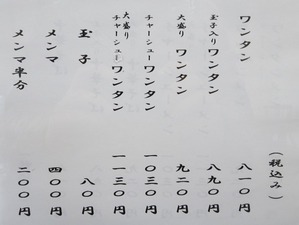 （税込み）
ワンタン 八一〇円
玉子入りワンタン 八九〇円
大盛りワンタン 九一〇円
チャーシューワンタン 一〇三〇円
大盛りチャーシューワンタン 一一三〇円
玉子 八〇円
メンマ 四〇〇円
メンマ半分 二〇〇円